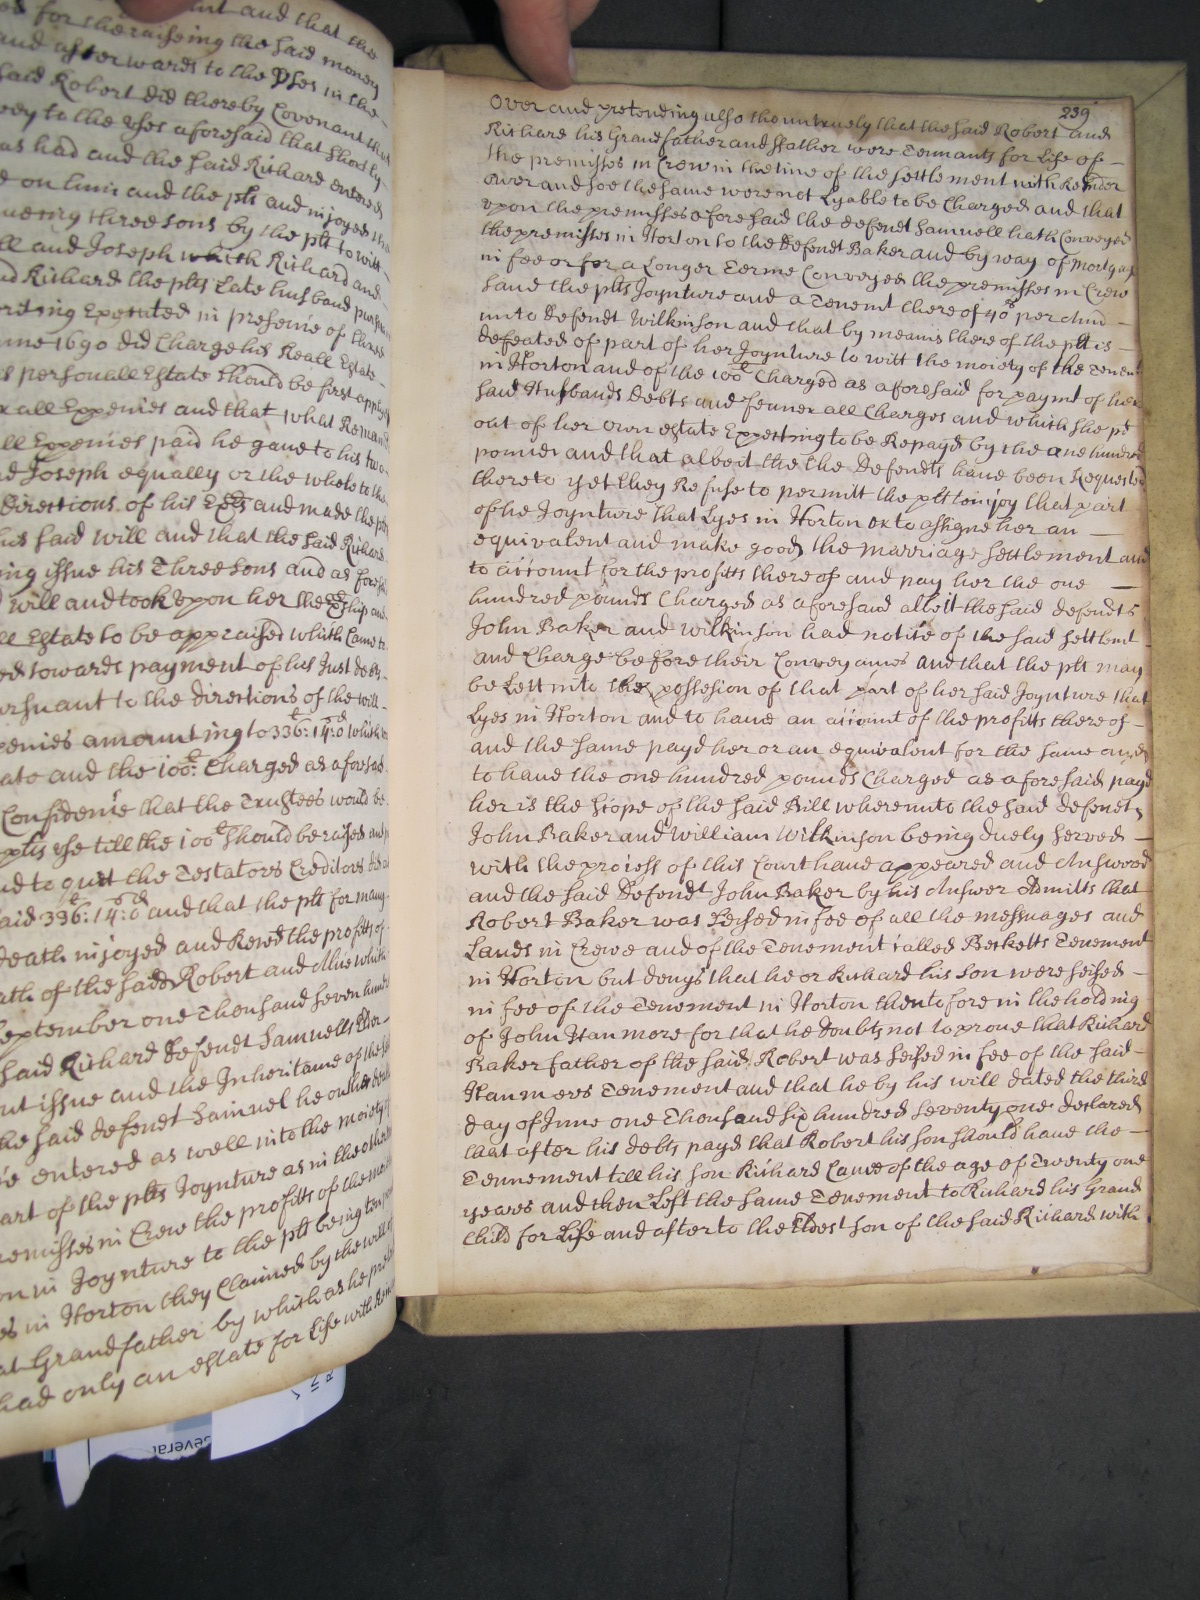 ant and that the
for the raiseing the said money
and afterwards to the Vses in the
said Robert did thereby Covenant
to the vses aforesaid that shortly
as had and the said Richard entered
on him and the plt and injoyed
three sons by the plt to witt
and Joseph which Richard and
Richard the plts Late husband
Executed in presence of three
June 1690 did Charge his Reall Estate
personall Estate should be first
all Expences and that what
all Expences paid he gave to his two
Joseph equally or the whole to the
directions of his Exrs and made the plt
his said will and that the said Richard
issue his Three sons and as
will and took vpon her the Exship and
Estate to be appraised which Came to
towards payment of his Just debts
pursuant to the directions of the will
amounting to 336l: 14s: 0d which
and the 100l: Charged as aforesaid
Confidence that the Trustees would be
plts vse till the 100l should be raised and
and to quiet the Testators Creditors did
said 336l: 14s: 0d and that the plt for many
death injoyed and Reced the profitts of
of the said Robert and Alice which
September one Thousand seven
said Richard Defendt Samuells Elder
issue and the Inheritance of the
the said defendt Samuel he
entered as well into the moiety
part of the plts Joynture as in the other
premisses in Crew the profitts of the
in Joynture to the plt being
in Horton they Claimed by the will
Grandfather by which as he
had only an estate for Life with
239
Over and pretending also tho untruely that the said Robert and
Richard his Grandfather and ffather were Tennants for Life of
the premisses in Crew in the time of the settlement with Remder
over and soe the same were not Lyable to be Charged and that
vpon the premisses aforesaid the defendt Samuell hath Conveyed
the premisses in Horton to the Defendt Baker and by way of Mortgage
in fee or for a Longer Terme Conveyed the premisses in Crew
saud the plts Joynture and a Tenemt there of 40s per Annu
unto Defendt Wilkinson and that by means thereof the plt is
defeated of part of her Joynture to witt the moiety of the Tenemt
in Horton and of the 100l Charged as aforesaid for paymt of her
said Husbands Debts and all Charges and which she pd
out of her own estate Expecting to be Repayd by the one hundred
pounds and that albeit the the Defendts have been Requested
thereto yet they Refuse to permitt the plt to injoy that part
of he Joynture that Lyes in Horton or to assigne her an
equivalent and make good the marriage settlement and
to account for the profitts thereof and pay her the one
hundred pounds Charged as aforesaid albeit the said defendts
John Baker and Wilkinson had notice of the said settlemt
and Charge before their Conveyances and that the plt may
be Lett into the possession of that part of her said Joynture that
Lyes in Horton and to have an account of the profitts thereof
and the same payd her or an equivalent for the same and
to have the one hundred pounds Charged as aforesaid payd
her is the Scope of the said Bill whereunto the said defendts
John Baker and William Wilkinson being duely served
with the process of this Court have appeared and Answered
and the said Defendt John Baker by his Answer Admitts that
Robert Baker was Seised in fee of all the messuages and
Lands in Crewe and of the Tenement called Becketts Tenement
in Horton but denys that he or Richard his son were seised
in fee of the Tenement in Horton thentofore in the holding
of John Hanmore for that he doubts not to prove that Richard
Baker father of the said Robert was seised in fee of the said
Hanmeres Tenement and that he by his will dated the third
day of June one Thousand six hundred seventy one declared
that after his debts payd that Robert his son should have the
Tennement till his son Richard Came of the age of Twenty one
yeares and then Left the same Tenement to Richard his Grand
Child for Life and after to the Eldest son of the said Richard with